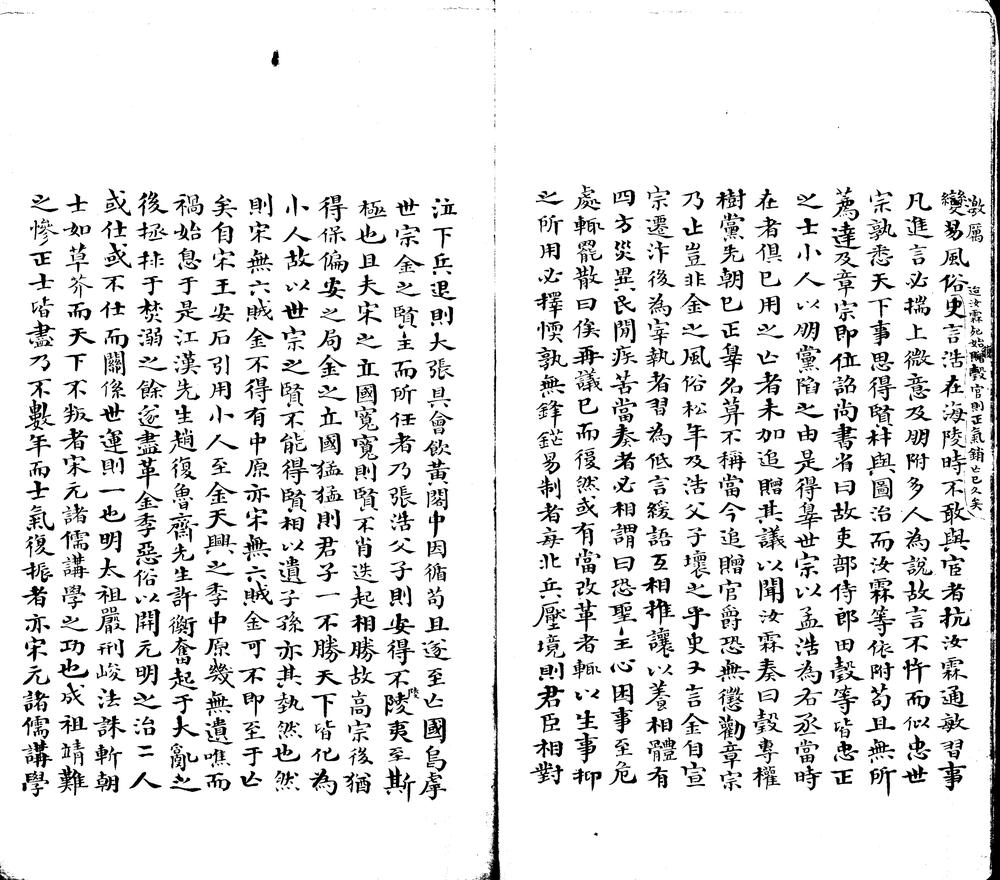 激厲
變易風俗史言浩在海陵時不敢與宦者抗汝霖通敏習事
迨汝霖死始贈瑴官則正氣銷亡已久矣
凡進言必揣上微意及朋附多人為說故言不忤而似忠世
宗孰悉天下事思得賢材與圖治而汝霖等依附苟且無所
薦達及章宗即位詔尚書省曰故吏部侍郎田瑴等皆忠正
之士小人以朋黨陷之由是得辠世宗以孟浩為右丞當時
在者俱已用之亡者未加追贈其議以聞汝霖奏曰瑴專權
樹黨先朝已正辠名算不稱當今追贈官爵恐無懲勸章宗
乃止豈非金之風俗松年及浩父子壞之乎史又言金自宣
宗遷汴後為宰執者習為低言緩語互相推讓以養相體有
四方災異民閒疾苦當奏者必相謂曰恐聖主心困事至危
處輒罷散曰俟再議已而復然或有當改革者輒以生事抑
之所用必擇愞孰無鋒鋩易制者每北兵壓境則君臣相對
泣下兵退則大張具會飲黃閣中因循苟且遂至亡國烏虖
世宗金之賢主而所任者乃張浩父子則安得不陵夷至斯
陵
極也且夫宋之立國寬寬則賢不肖迭起相勝故高宗後猶
得保偏安之局金之立國猛猛則君子一不勝天下皆化為
小人故以世宗之賢不能得賢相以遺子孫亦其執然也然
則宋無六賊金不得有中原亦宋無六賊金可不即至于亡
矣自宋王安石引用小人至金天興之季中原幾無遺噍而
禍始息于是江漢先生趙復魯齋先生許衡奮起于大亂之
後拯㧞于焚溺之餘遂盡革金季惡俗以開元明之治二人
或仕或不仕而關係世運則一也明太祖嚴刑峻法誅斬朝
士如草芥而天下不叛者宋元諸儒講學之功也成祖靖難
之慘正士皆盡乃不數年而士氣復振者亦宋元諸儒講學